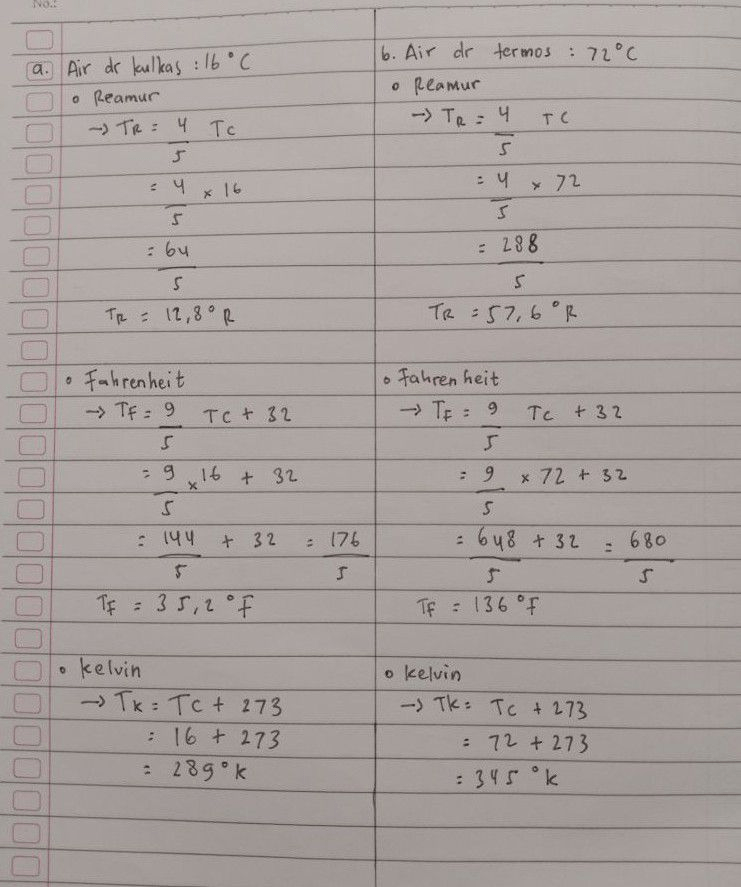 No.:
a. Air dr kulkas : 16°C
o Reamur
→ TR = 4/5 Tc
= 4/5 × 16
= 64/5
TR = 12,8°R
o Fahrenheit
→ TF = 9/5 Tc + 32
= 9/5 × 16 + 32
= 144/5 + 32 = 176/5
TF = 35,2°F
o kelvin
→ TK = Tc + 273
= 16 + 273
= 289°k
b. Air dr termos : 72°C
o Reamur
→ TR = 4/5 TC
= 4/5 × 72
= 288/5
TR = 57,6°R
o Fahrenheit
→ TF = 9/5 Tc + 32
= 9/5 × 72 + 32
= 648/5 + 32 = 680/5
TF = 136°F
o kelvin
→ TK = Tc + 273
= 72 + 273
= 345°k